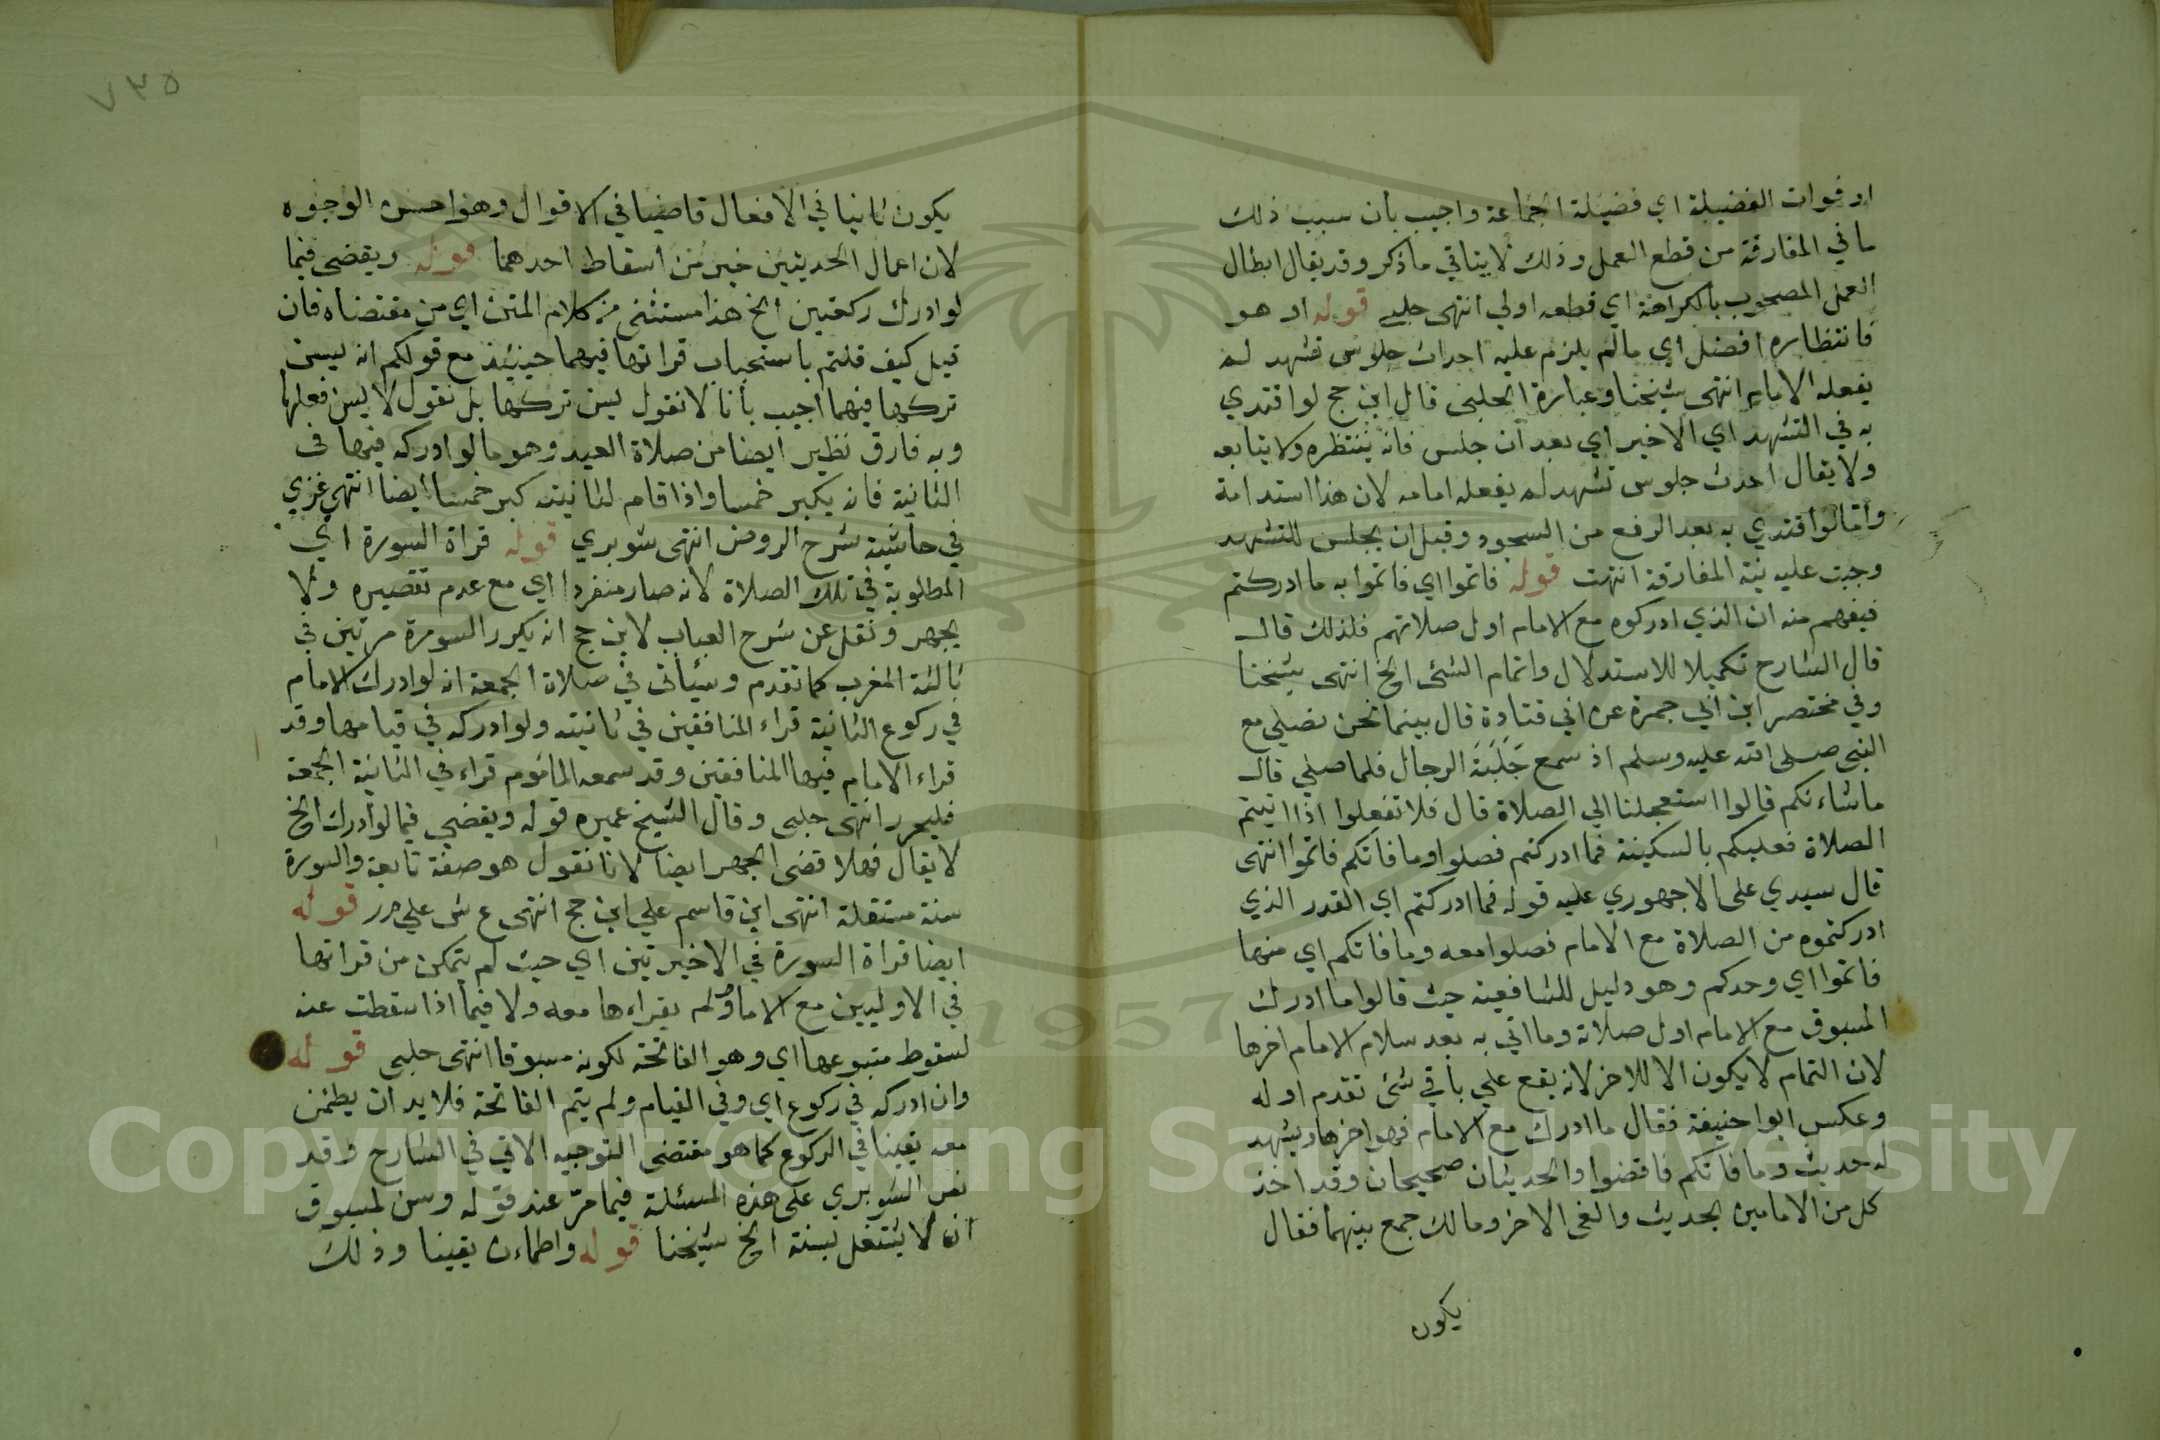 او فوات الفضيلة اي فضيلة الجماعة واجيب بأن سبب ذلك
ما في المفارقة من قطع العمل وذلك لاينافي ماذكر وقد يقال ابطال
العمل المصحوب بالكراهة اي قطعه اولي انتهى حلبي قوله او هو
فانتظاره افضل اي مالم يلزم عليه احداث جلوس تشهد لم
يفعله الامام انتهى شيخنا وعبارة الحلبي قال ابن حج لو اقتدي
به في التشهد اي الاخير اي بعد ان جلس فانه ينتظره ولا يتابعه
ولا يقال احدث جلوس تشهد لم يفعله امامه لان هذا استدامة
وأمّا لو أقتدي به بعد الرفع من السجود وقبل ان يجلس للتشهد
وجبت عليه نية المفارقة انتهت قوله فاتموا اي فاتموا به ما ادركتم
فيفهم منه ان الذي ادركوه مع الامام اول صلاتهم فلذلك قال
قال الشارح تكميلا للاستدلال واتمام الشئ الخ انتهى شيخنا
وفي مختصر ابن ابي جمرة عن ابي قتادة قال بينما نحن نصلي مع
النبي صلى الله عليه وسلم اذ سمع جَلَبَةَ الرجال فلما صلي قال
ماشاءنكم قالوا استعجلنا الي الصلاة قال فلا تفعلوا اذا اتيتم
الصلاة فعليكم بالسكينة فما ادركتم فصلوا وما فاتكم فاتموا انتهى
قال سيدي على الاجهوري عليه قوله فما ادركتم اي القدر الذي
ادركتموه من الصلاة مع الامام فصلوا معه وما فاتكم اي منها
فاتموا اي وحدكم وهو دليل للشافعية حيث قالوا ما ادرك
المسبوق مع الامام اول صلاته وما اتي به بعد سلام الامام اخرها
لان التمام لا يكون الا للاخر لانه يقع علي باقي شئ تقدم اوله
وعكس ابوا حنيفة فقال ما ادرك مع الامام فهو اخرها ويشهد
له حديث وما فاتكم فاقضوا والحديثان صحيحان وقد اخذ
كل من الامامين بحديث والغى الاخر ومالك جمع بينهما فقال
يكون
٧٣٥
يكون ثانيا في الافعال قاضيا في الاقوال وهو احسن الوجوه
لان اعمال الحديثين خير من اسقاط احدهما قوله ويقضى فيما
لو ادرك ركعتين الخ هذا مستثنى من كلام المتن اي من مقتضاه فان
قيل كيف قلتم باستحباب قراتها فيهما حينئذ مع قولكم انه يسن
تركها فيهما اجيب بأنا لا نقول يسن تركها بل نقول لا يسن فعلها
وبه فارق نظير ايضا من صلاة العيد وهو ما لو ادركه فيها في
الثانية فانه يكبر خمسا واذا قام لثانيته كبر خمسا ايضا انتهى غزي
في حاشية شرح الروض انتهى شوبري قوله قراة السورة اي
المطلوبة في تلك الصلاة لانه صار منفردا اي مع عدم تقصيره ولا
يجهر ونقل عن شرح العباب لابن حج انه يكرر السورة مرتين في
ثالثة المغرب كما تقدم وسيأتى في صلاة الجمعة انه لو ادرك الامام
في ركوع الثانية قراء المنافقين في ثانيته ولو ادركه في قيامها وقد
قراء الامام فيها المنافقين وقد سمعه الماموم قراء في الثانية الجمعة
فليحرر انتهى حلبى وقال الشيخ عميره قوله ويقضي فيما لو أدرك الخ
لا يقال فهلا قضى الجهر ايضا لانا نقول هو صفة تابعة والسورة
سنة مستقلة انتهى ابن قاسم علي ابن حج انتهى ع ش علي مر قوله
ايضا قراة السورة في الاخيرتين اي حيث لم يتمكن من قراتها
في الاوليين مع الامام ولم يقراءها معه ولا فيما اذا سقطت عنه
لسقوط متبوعها اي وهو الفاتحة لكونه مسبوقا انتهى حلبى قوله
وان ادركه في ركوع اي وفي القيام ولم يتم الفاتحة فلا بد ان يطمئن
معه يقينا في الركوع كما هو مقتضى التوجيه الاتي في الشارح وقد
نص الشوبري على هذه المسئلة فيما مرّ عند قوله وسن لمسبوق
ان لا يشتغل بسنة الخ شيخنا قوله واطماءن يقينا وذلك
1957
Copyright © King Saud University